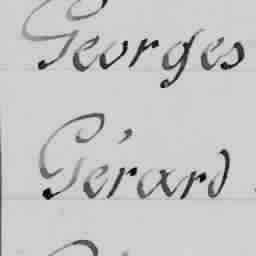 Georges
Gérard